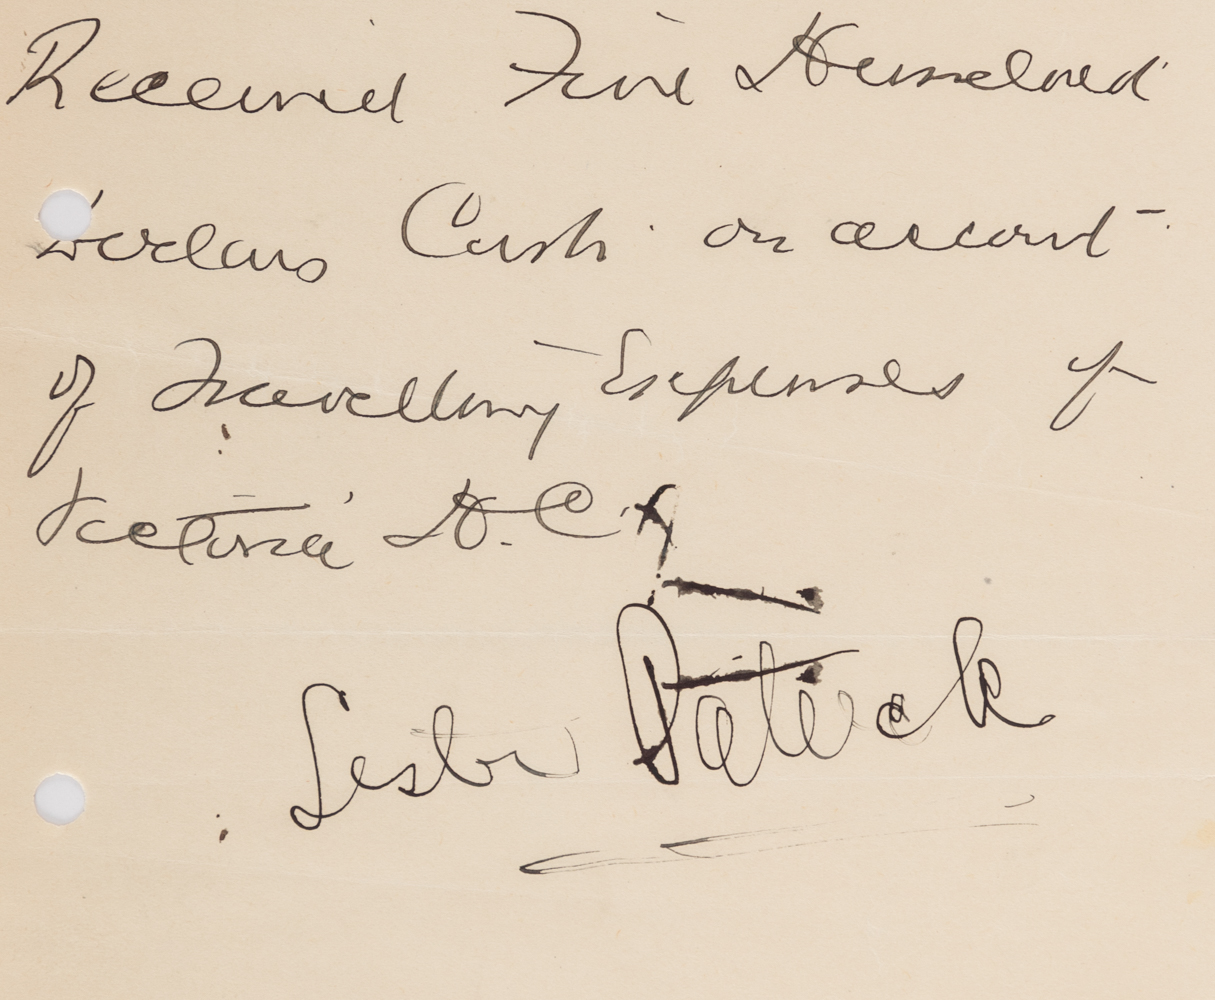 Received Five Hundred
Dollars Cash on account
of Travelling Expenses of
Victoria H. C.
Lester Patrick